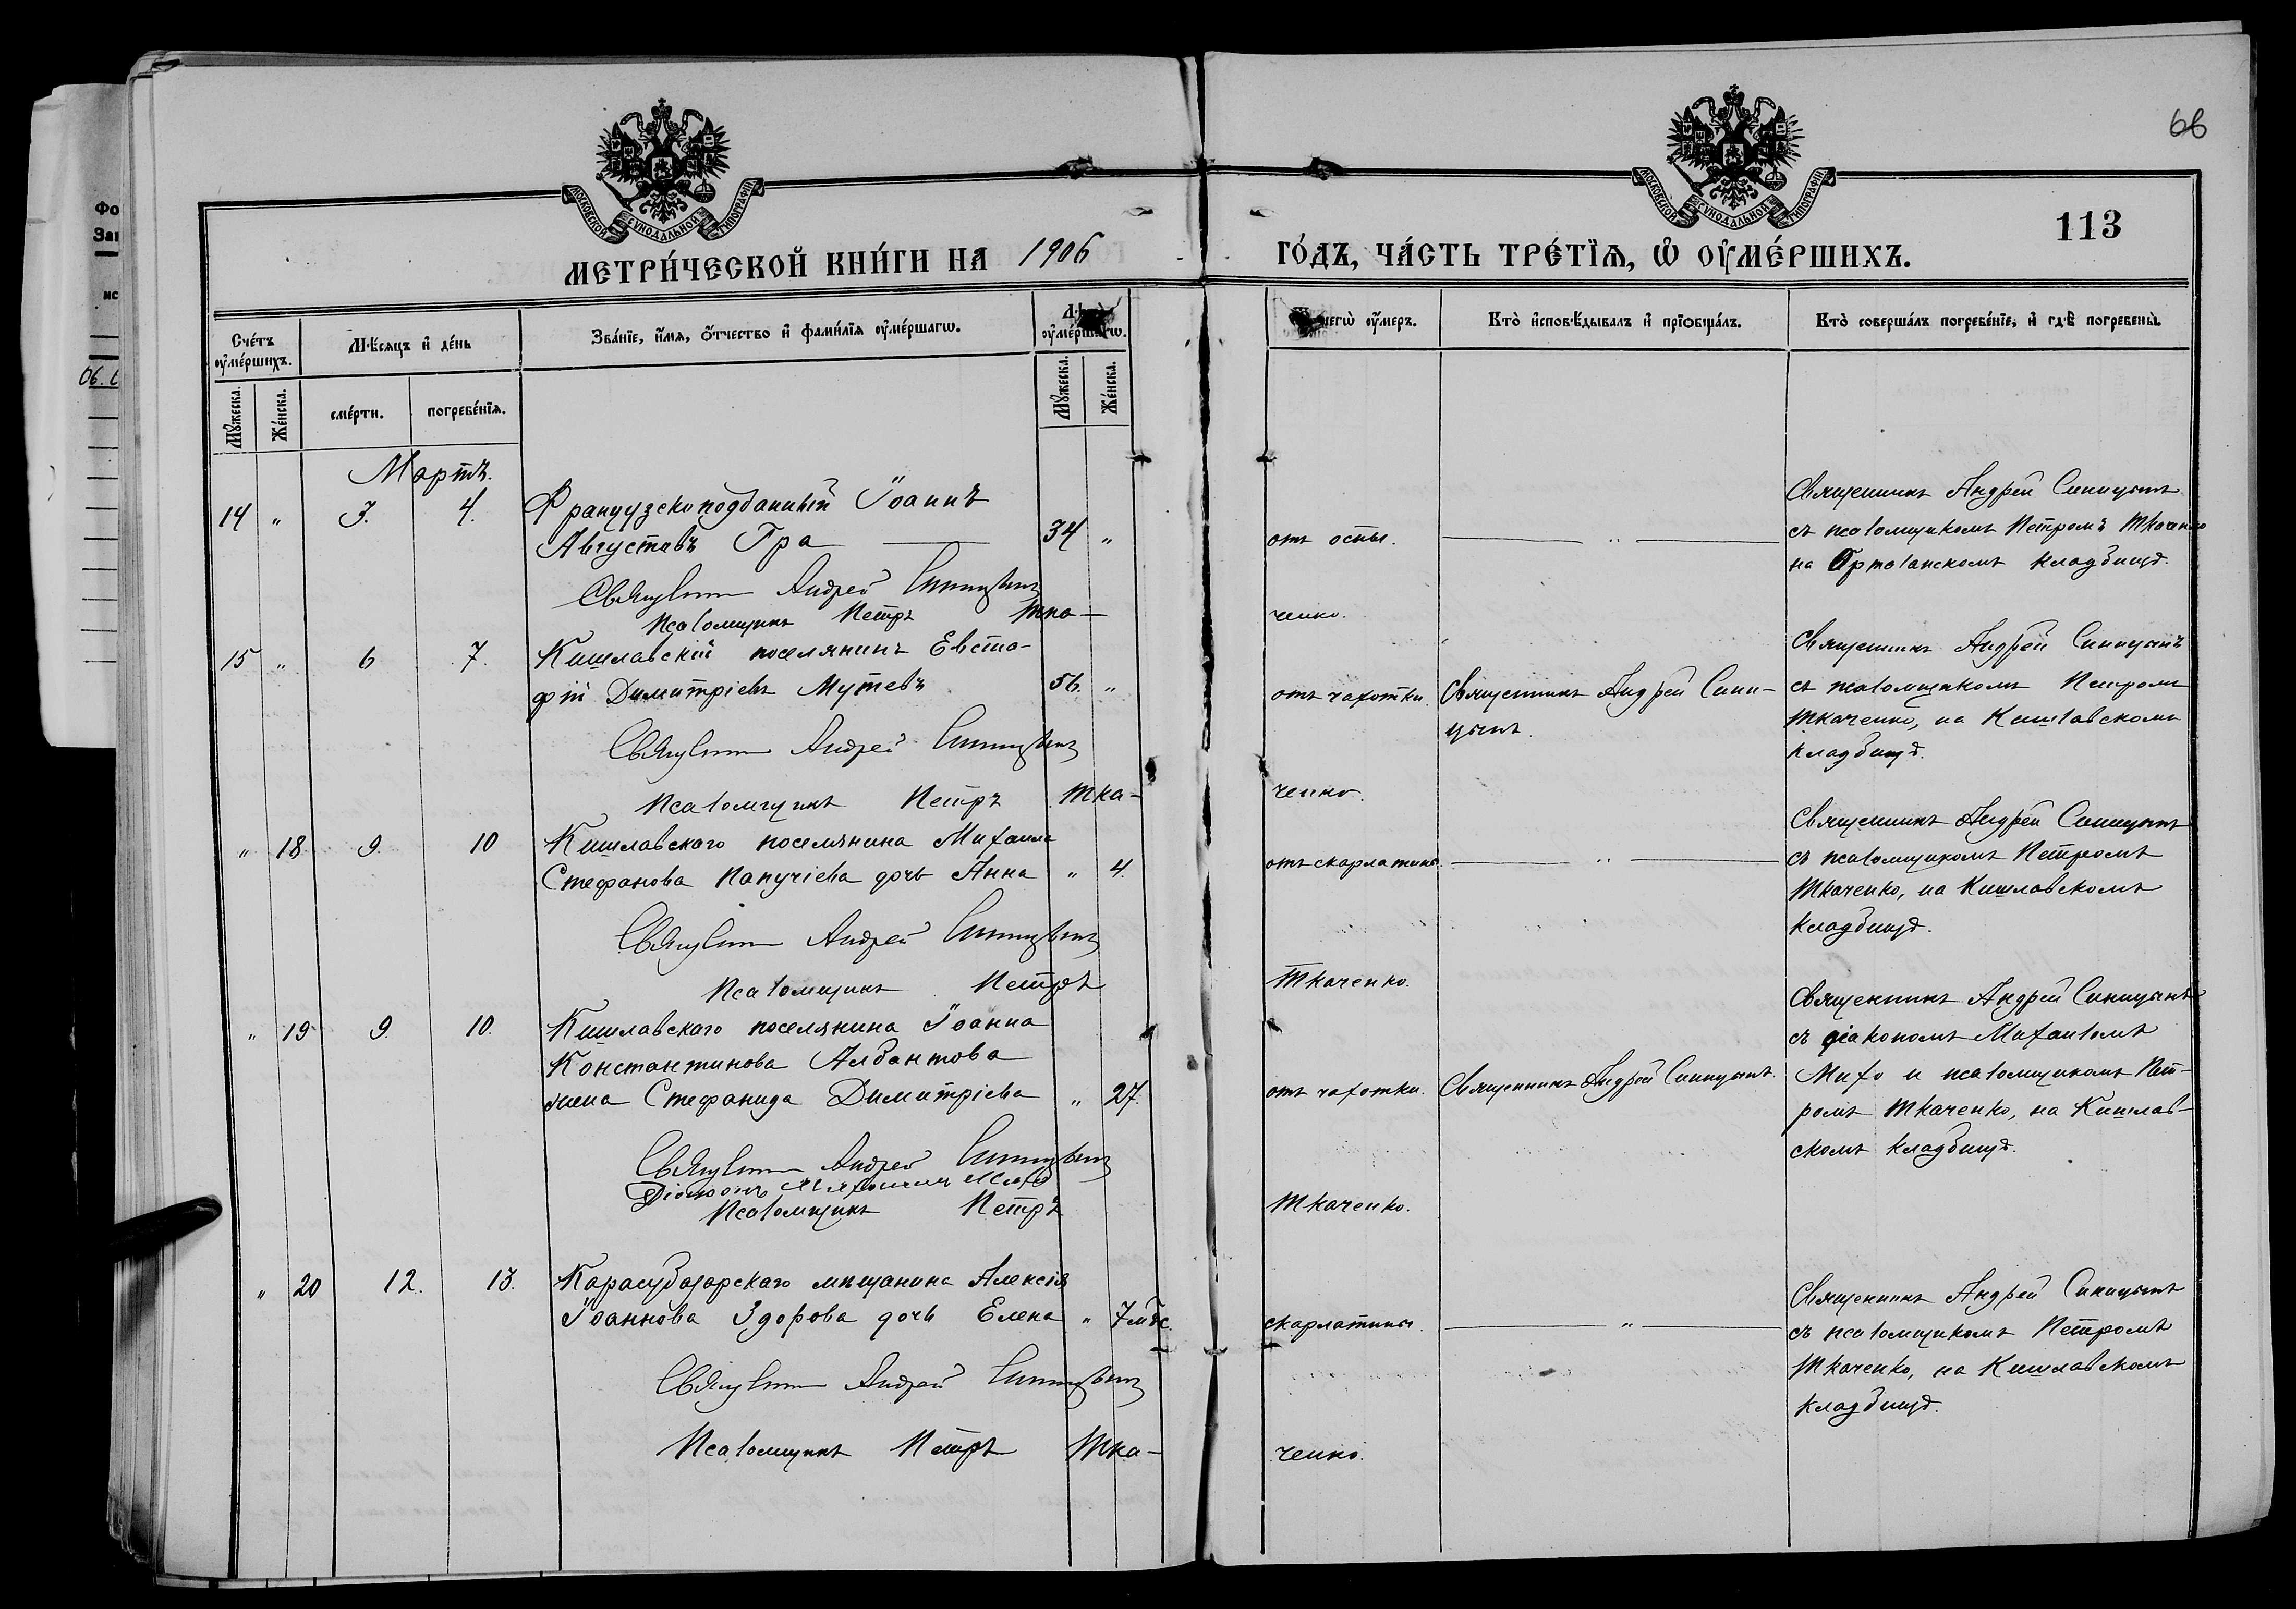 66
МОСКОВСКОЙ СѴНОДАЛЬНОЙ ТИПОГРАФІИ
МОСКОВСКОЙ СѴНОДАЛЬНОЙ ТИПОГРАФІИ
113
МЕТРИ́ЧЕСКОЙ КНИ́ГИ НА 1906 ГО́ДЪ, ЧА́СТЬ ТРЕ́ТЇѦ, Ѡ҆ ОУ҆МЕ́РШИХЪ.
Сче́тъ оу҆ме́ршихъ.
Мꙋ́жеска.
Же́нска.
Мѣ́сяцъ и҆ де́нь
сме́рти.
погребе́нїя.
Зва́нїе, и҆́мя, ѻ҆́тчество и҆ фами́лїя оу҆ме́ршагѡ.
оу҆ме́ршагѡ.
Мꙋ́жеска.
Же́нска.
чегѡ̀ оу҆́меръ.
Кто̀ и҆сповѣ́дывалъ и҆ прїѡбща́лъ.
Кто̀ соверша́лъ погребе́нїе, и҆ гдѣ̀ погребены̀.
Мартъ.
14 " 3. 4. Французскоподданный Іоаннъ
Августовъ Гра 34 "
отъ оспы. "
Священникъ Андрей Синицынъ
съ псаломщикомъ Петромъ Ткаченко
на Орталанскомъ кладбищѣ.
Священникъ Андрей Синицынъ
Псаломщикъ Петръ Тка-
ченко.
15 " 6 7. Кишлавскій поселянинъ Евста-
фій Димитріевъ Мутевъ 56. "
отъ чахотки. Священникъ Андрей Сини-
цынъ.
Священникъ Андрей Синицынъ
съ псаломщикомъ Петромъ
Ткаченко, на Кишлавскомъ
кладбищѣ.
Священникъ Андрей Синицынъ
Псаломщикъ Петръ Тка-
ченко.
" 18 9. 10 Кишлавскаго поселянина Михаила
Стефанова Папучіева дочь Анна " 4.
отъ скарлатины. "
Священникъ Андрей Синицынъ
съ псаломщикомъ Петромъ
Ткаченко, на Кишлавскомъ
кладбищѣ.
Священникъ Андрей Синицынъ
Псаломщикъ Петръ
Ткаченко.
" 19 9. 10. Кишлавскаго поселянина Іоанна
Константинова Албантова
жена Стефанида Димитріева " 27.
отъ чахотки. Священникъ Андрей Синицынъ.
Священникъ Андрей Синицынъ
съ діакономъ Михаиломъ
Михо и псаломщикомъ Пет-
ромъ Ткаченко, на Кишлав-
скомъ кладбищѣ.
Священникъ Андрей Синицынъ
Діаконъ Михаилъ Михо
Псаломщикъ Петръ
Ткаченко.
" 20 12. 13. Карасубазарскаго мѣщанина Алексія
Іоаннова Здорова дочь Елена " 7 мѣс.
скарлатины. "
Священникъ Андрей Синицынъ
съ псаломщикомъ Петромъ
Ткаченко, на Кишлавскомъ
кладбищѣ.
Священникъ Андрей Синицынъ
Псаломщикъ Петръ Тка-
ченко.